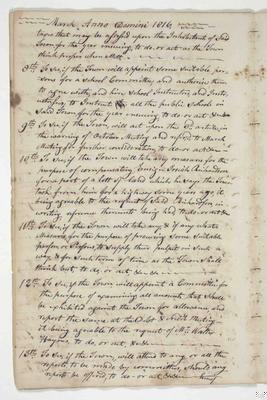 March Anno Domini 1816
taxes that may be assess'd upon the Inhabitants of said
Town for the year ensuing to do or act as the Town
think proper when Met
8th To see if the Town will appoint some suitable per-
sons for a School Committee and authorise them
to agree with and hire School Instructors and Instr-
to Instruct all the public Schools in
Said Town for the year ensuing to do or act &c
9th To see if the Town will act upon the
the warning of October Meeting and
Meeting for further consideration to do or act &c
10th To see if the Town will take any measures for the
purpose of compensating Richardson
for a part of a lott of land which he says the Town
took from him for a highway some years ago it
being agreable to the request of said Richardson in
writing aforesaid to do or act &c
11th To see if the Town will take any & if any what
Measures for the purpose of procuring some Suitable
person or Persons to Supply their Pulpit in such a
way & for such term of time as the Town shall
think best to do or act &c &c
12th To see if the Town will appoint a Committee for
the purpose of examining all accounts that shall
be exhibited against the Town for allowance and
report the same at the Meeting
it being agreable to the request of Mr.
to do or act &c &c
13th To see if the Town will attend to any or all the
reports to be made by committees should any
reports be offer'd to do or act &c &c